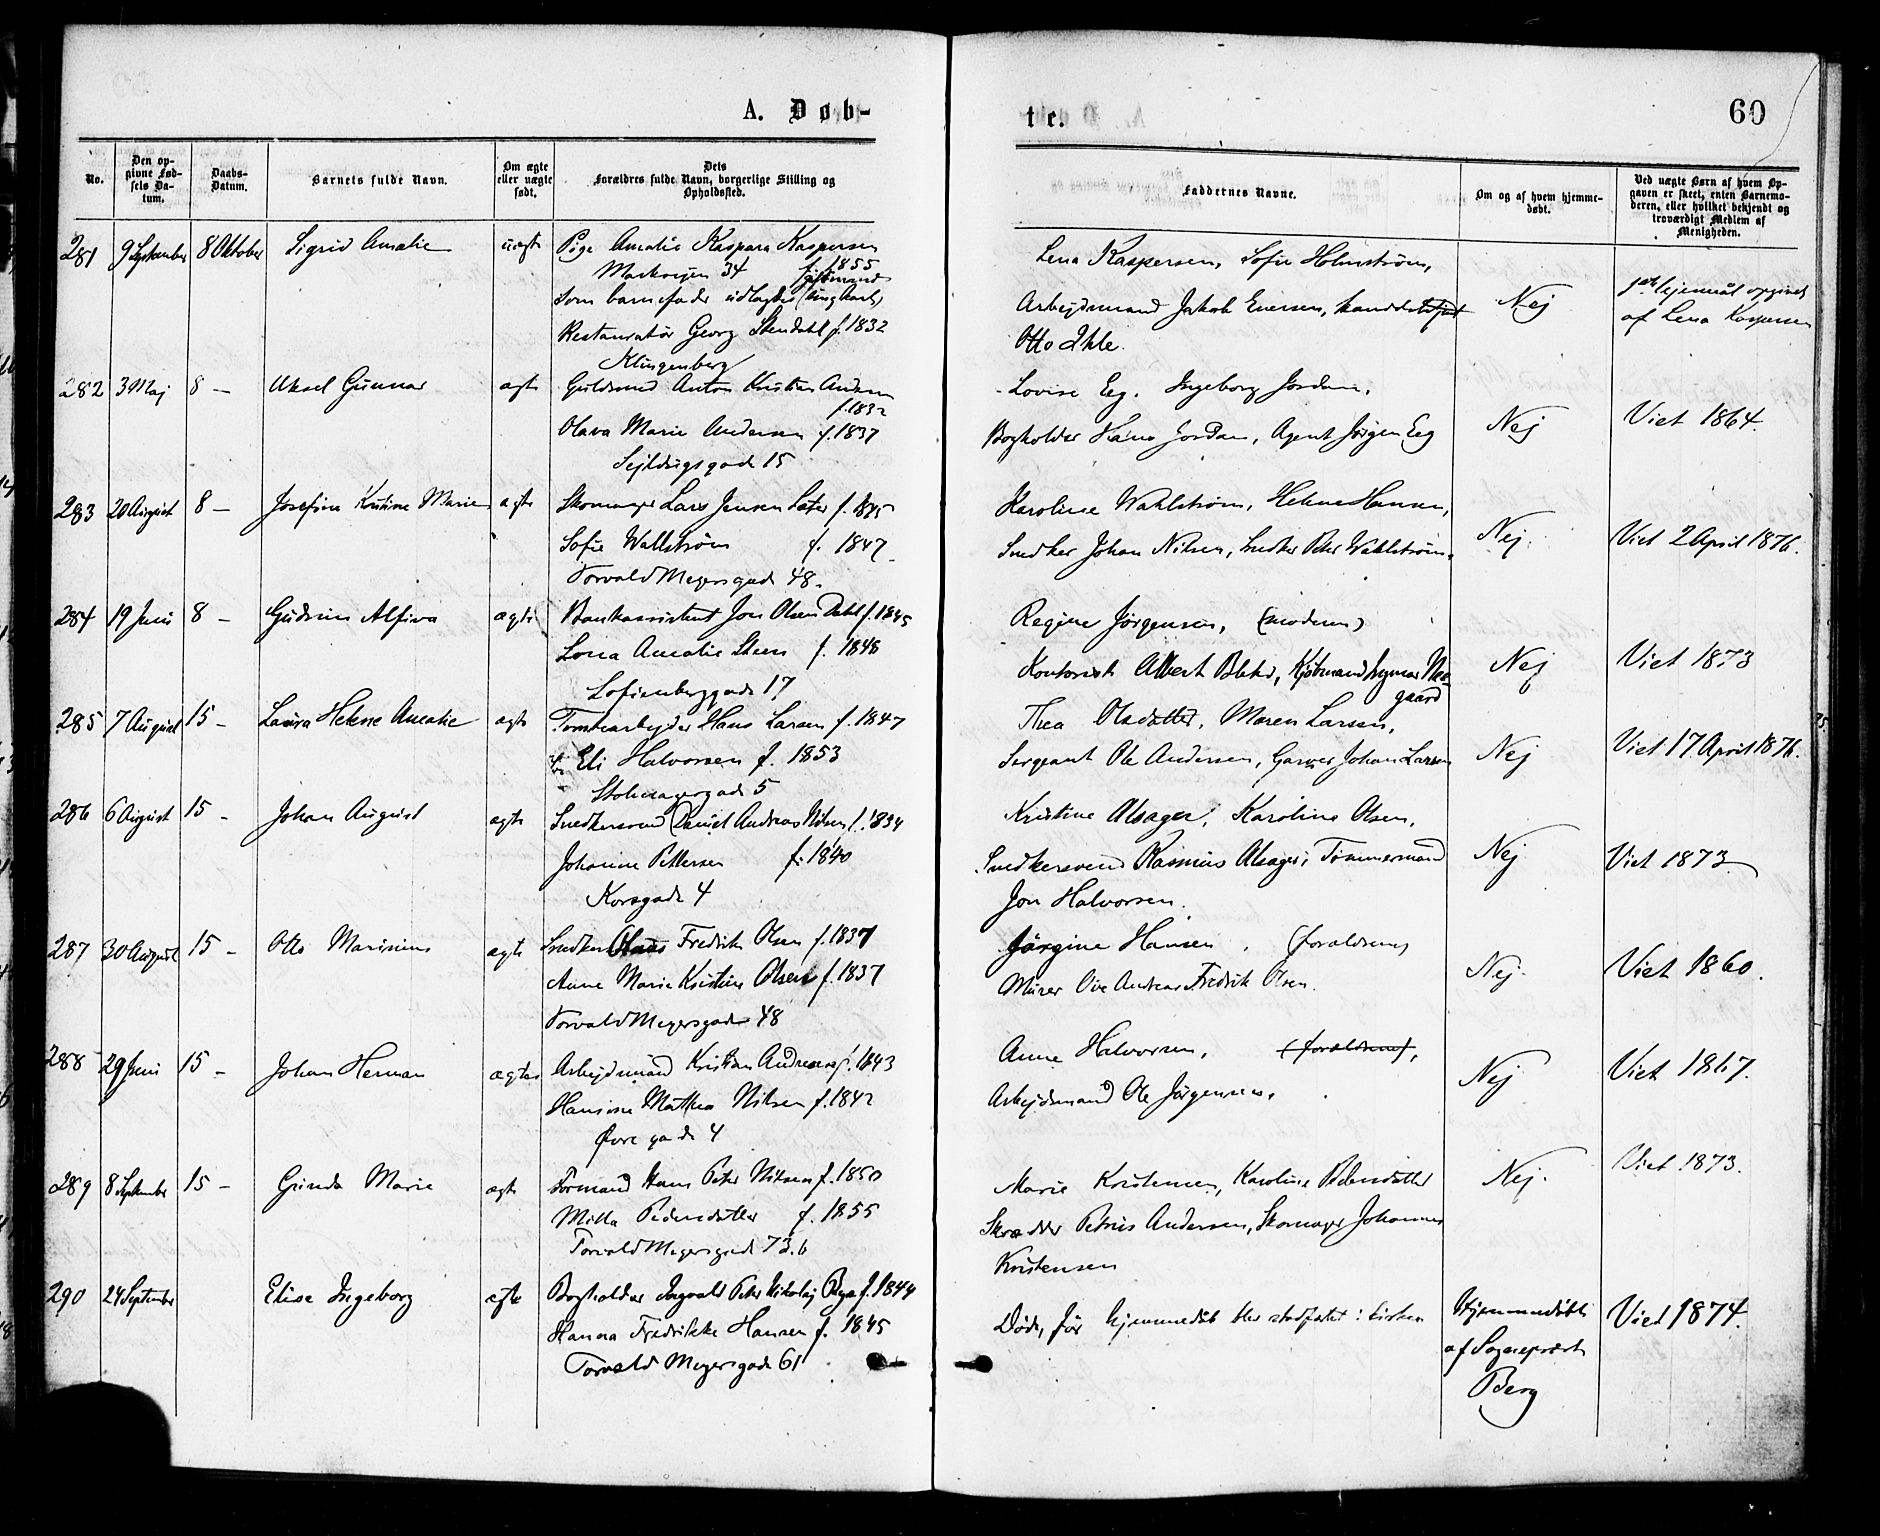 A. Døb-
te.
60
No.
Den op-
givne Fød-
sels Da-
tum.
Daabs-
Datum.
Barnets fulde Navn.
Om ægte
eller uægte
født.
Dets
Forældres fulde Navn, borgerlige Stilling og
Opholdssted.
Faddernes Navne.
Om og af hvem hjemme-
døbt.
Ved uægte Børn af hvem Op-
gaven er skeet, enten Barnemo-
deren, eller hvilket bekjendt og
troværdigt Medlem af
Menigheden.
281 9 September 8 Oktober Sigrid Amalie uægte Pige Amalie Kaspara Kaspersen
f. 1855
Markvejen 34
Som barnefader udlagtes (ungkarl)
Restauratør Georg Stendahl f. 1832
Klingenberg
Lena Kaspersen, Sofie Holmstrøm,
Arbejdsmand Jakob Eversen,
Otto Ihle.
Nej
1ste lejermål opgivet
af Lena Kaspersen
282 3 Maj 8 — Aksel Gunnar ægte Guldsmed Anton Kristian Andersen
f. 1832
Olava Marie Andersen f. 1837
Sejldugsgade 15
Lovise Eeg. Ingeborg Jordan,
Bogholder Hans Jordan, Agent Jørgen Eeg
Nej
Viet 1864.
283 20 August 8 — Josefine Kristine Marie ægte Skomager Lars Jensen Sæter f. 1845
Sofie Wallstrøm f. 1847
Torvald Meyersgade 48.
Karoline Wahlstrøm, Helene Hansen,
Snedker Johan Nilsen, Snedker Peter Wahlstrøm.
Nej.
Viet 2 April 1876.
284 19 Juni 8 — Gudrun Alfiva ægte Bankassistent Jon Olsen Dahl f. 1845
Lona Amalie Steen f. 1848
Sofienberggade 17
Regine Jørgensen, (moderen)
Kontorist Albert Blehr, Kjøbmand Ingmar Nor-
gaard
Nej
Viet 1873
285 7 August 15 — Laura Helene Amalie ægte Tomtearbejder Hans Larsen f. 1847
Eli Halvorsen f. 1853
Stolmagergade 5
Thea Olsdatter, Maren Larsen,
Sergeant Ole Andersen, Garver Johan Larsen
Nej
Viet 17 April 1876.
286 6 August 15 — Johan August ægte Snedkersvend Daniel Andreas Nilsen f. 1834
Johanne Pettersen f. 1840
Korsgade 4
Kristine Alsager, Karoline Olsen,
Snedkersvend Rasmus Alsager, Tømmermand
Jon Halvorsen.
Nej
Viet 1873
287 30 August 15 — Otto Marinius ægte Snedker Olaus Fredrik Olsen f. 1837
Anne Marie Kristine Olsen f. 1837
Torvald Meyersgade 48
Jørgine Hansen, (forældrene)
Murer Ove Andreas Fredrik Olsen.
Nej.
Viet 1860.
288 29 Juni 15 — Johan Herman ægte Arbejdsmand Kristian Andreas f. 1843
Hansine Mathea Nilsen f. 1842
Øvregade 4
Anne Halvorsen, (forældrene),
Arbejdsmand Ole Jørgensen.
Nej
Viet 1867.
289 8 September 15 — Gunda Marie ægte Formand Hans Peter Nilsen f. 1850
Milla Pedersdatter f. 1855
Torvald Meyersgade 73.b
Marie Kristensen, Karoline Pedersdatter
Skrædder Petrus Andersen, Skomager Johannes
Kristensen
Nej.
Viet 1873.
290 24 September Elise Ingeborg ægte Bogholder Ingvald Peter Nikolaj Rye f. 1844
Hanna Fredrikke Hansen f. 1845
Torvald Meyersgade 61
Døde, før hjemmedåb blev stadfæstet i kirken
Hjemmedøbt
af Sogneprest
Berg
Viet 1874.